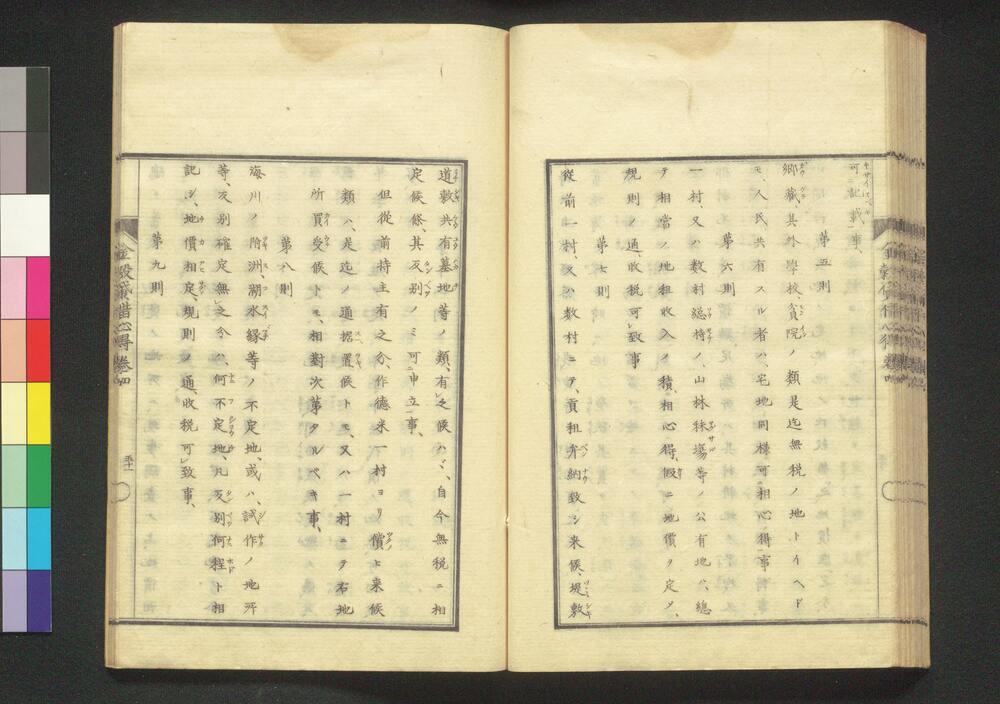 可ニ記載一事、
第五則
郷蔵、其外学校、貧院ノ類是迄無税ノ地トイヘド
モ、人民共有スル者ハ、宅地同様可相心得事
第六則
一村、又ハ数村総持ノ、山林秣場等ノ公有地ハ、総
テ相當ノ地租收入ノ積相心得、假ニ地價ヲ定メ、
規則ノ通、收税可レ致事
第七則
従前一村、又ハ数村ニテ、貢租弁納致シ来候、堤敷
道敷共有墓地等ノ類、有レ之候ハヾ、自今無税ニ相
定候條、其反別ノミ可ニ申立一事、
但従前持主有之分、作徳米一村ヨリ償ヒ来候
類ハ、是迄ノ通据置候トモ、又ハ一村ニテ右地
所買受候トモ、相對次第タルベキ事、
第八則
海川ノ附洲、湖水縁等ノ不定地、或ハ、試作ノ地所
等、反別確定無レ之分ハ、何不定地、凡反別何程ト相
記シ、地價相定、規則ノ通、收税可レ致事、
第九則
金穀貸借心得 巻四
五十一